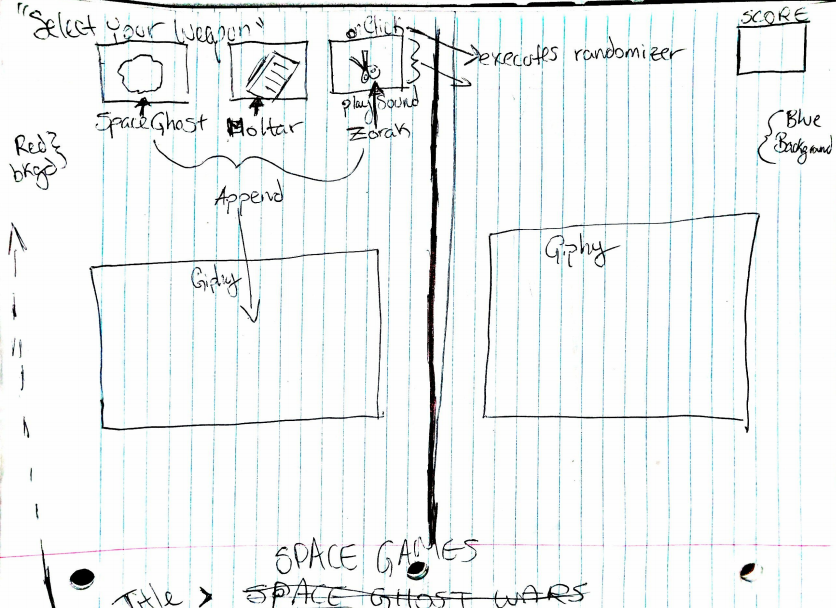 "Select your Weapon"
onClick
executes randomizer
SCORE
playSound
Space Ghost
Moltar
Zorak
Red
bkgd
Blue
Background
Append
Giphy
Giphy
SPACE GAMES
Title > SPACE GHOST WARS